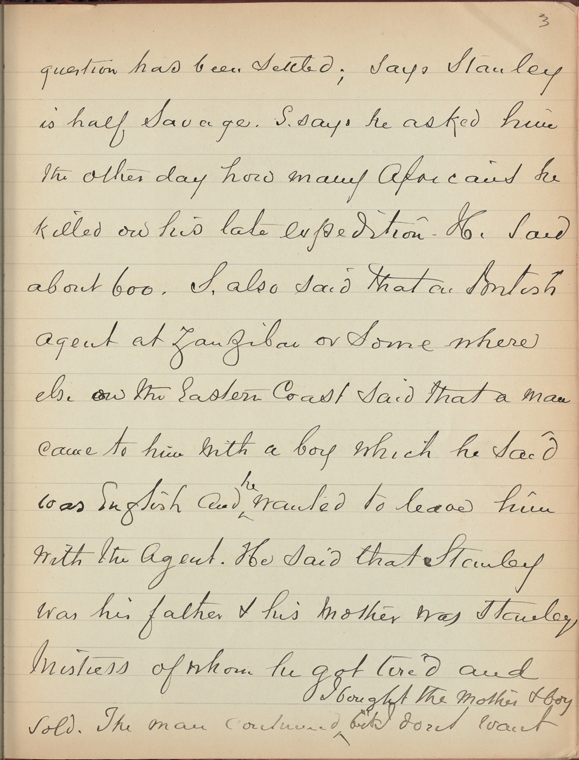 3
question has been settled; says Stanley
is half Savage. S. says he asked him
the other day how many Africans he
killed on his late expedition. He said
about 600. S. also said that a British
agent at Zanzibar or Some where
else on the Eastern Coast said that a man
came to him with a boy which he said
was English and he wanted to leave him
with the Agent. He said that Stanley
was his father & his Mother was Stanley
Mistress of whom he got tire'd and
I bought the Mother & boy
sold. The man continued, but dont want